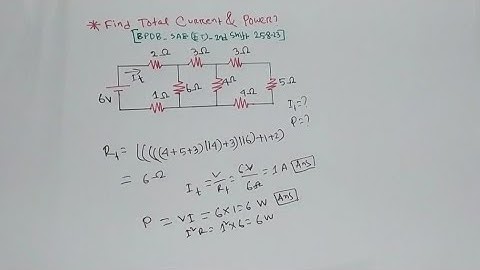 * Find Total Current & Power?
[BPDB_SAE (EE)_2nd Shift 25823]
2Ω 3Ω 3Ω
It
6V 6Ω 4Ω 5Ω
1Ω 4Ω
I₁=?
P=?
Rt = (((((4+5+3)||4)+3)||6)+1+2)
= 6Ω
It = V/Rt = 6V/6Ω = 1A Ans
P = VI = 6×1 = 6 W Ans
I²R = 1²×6 = 6W